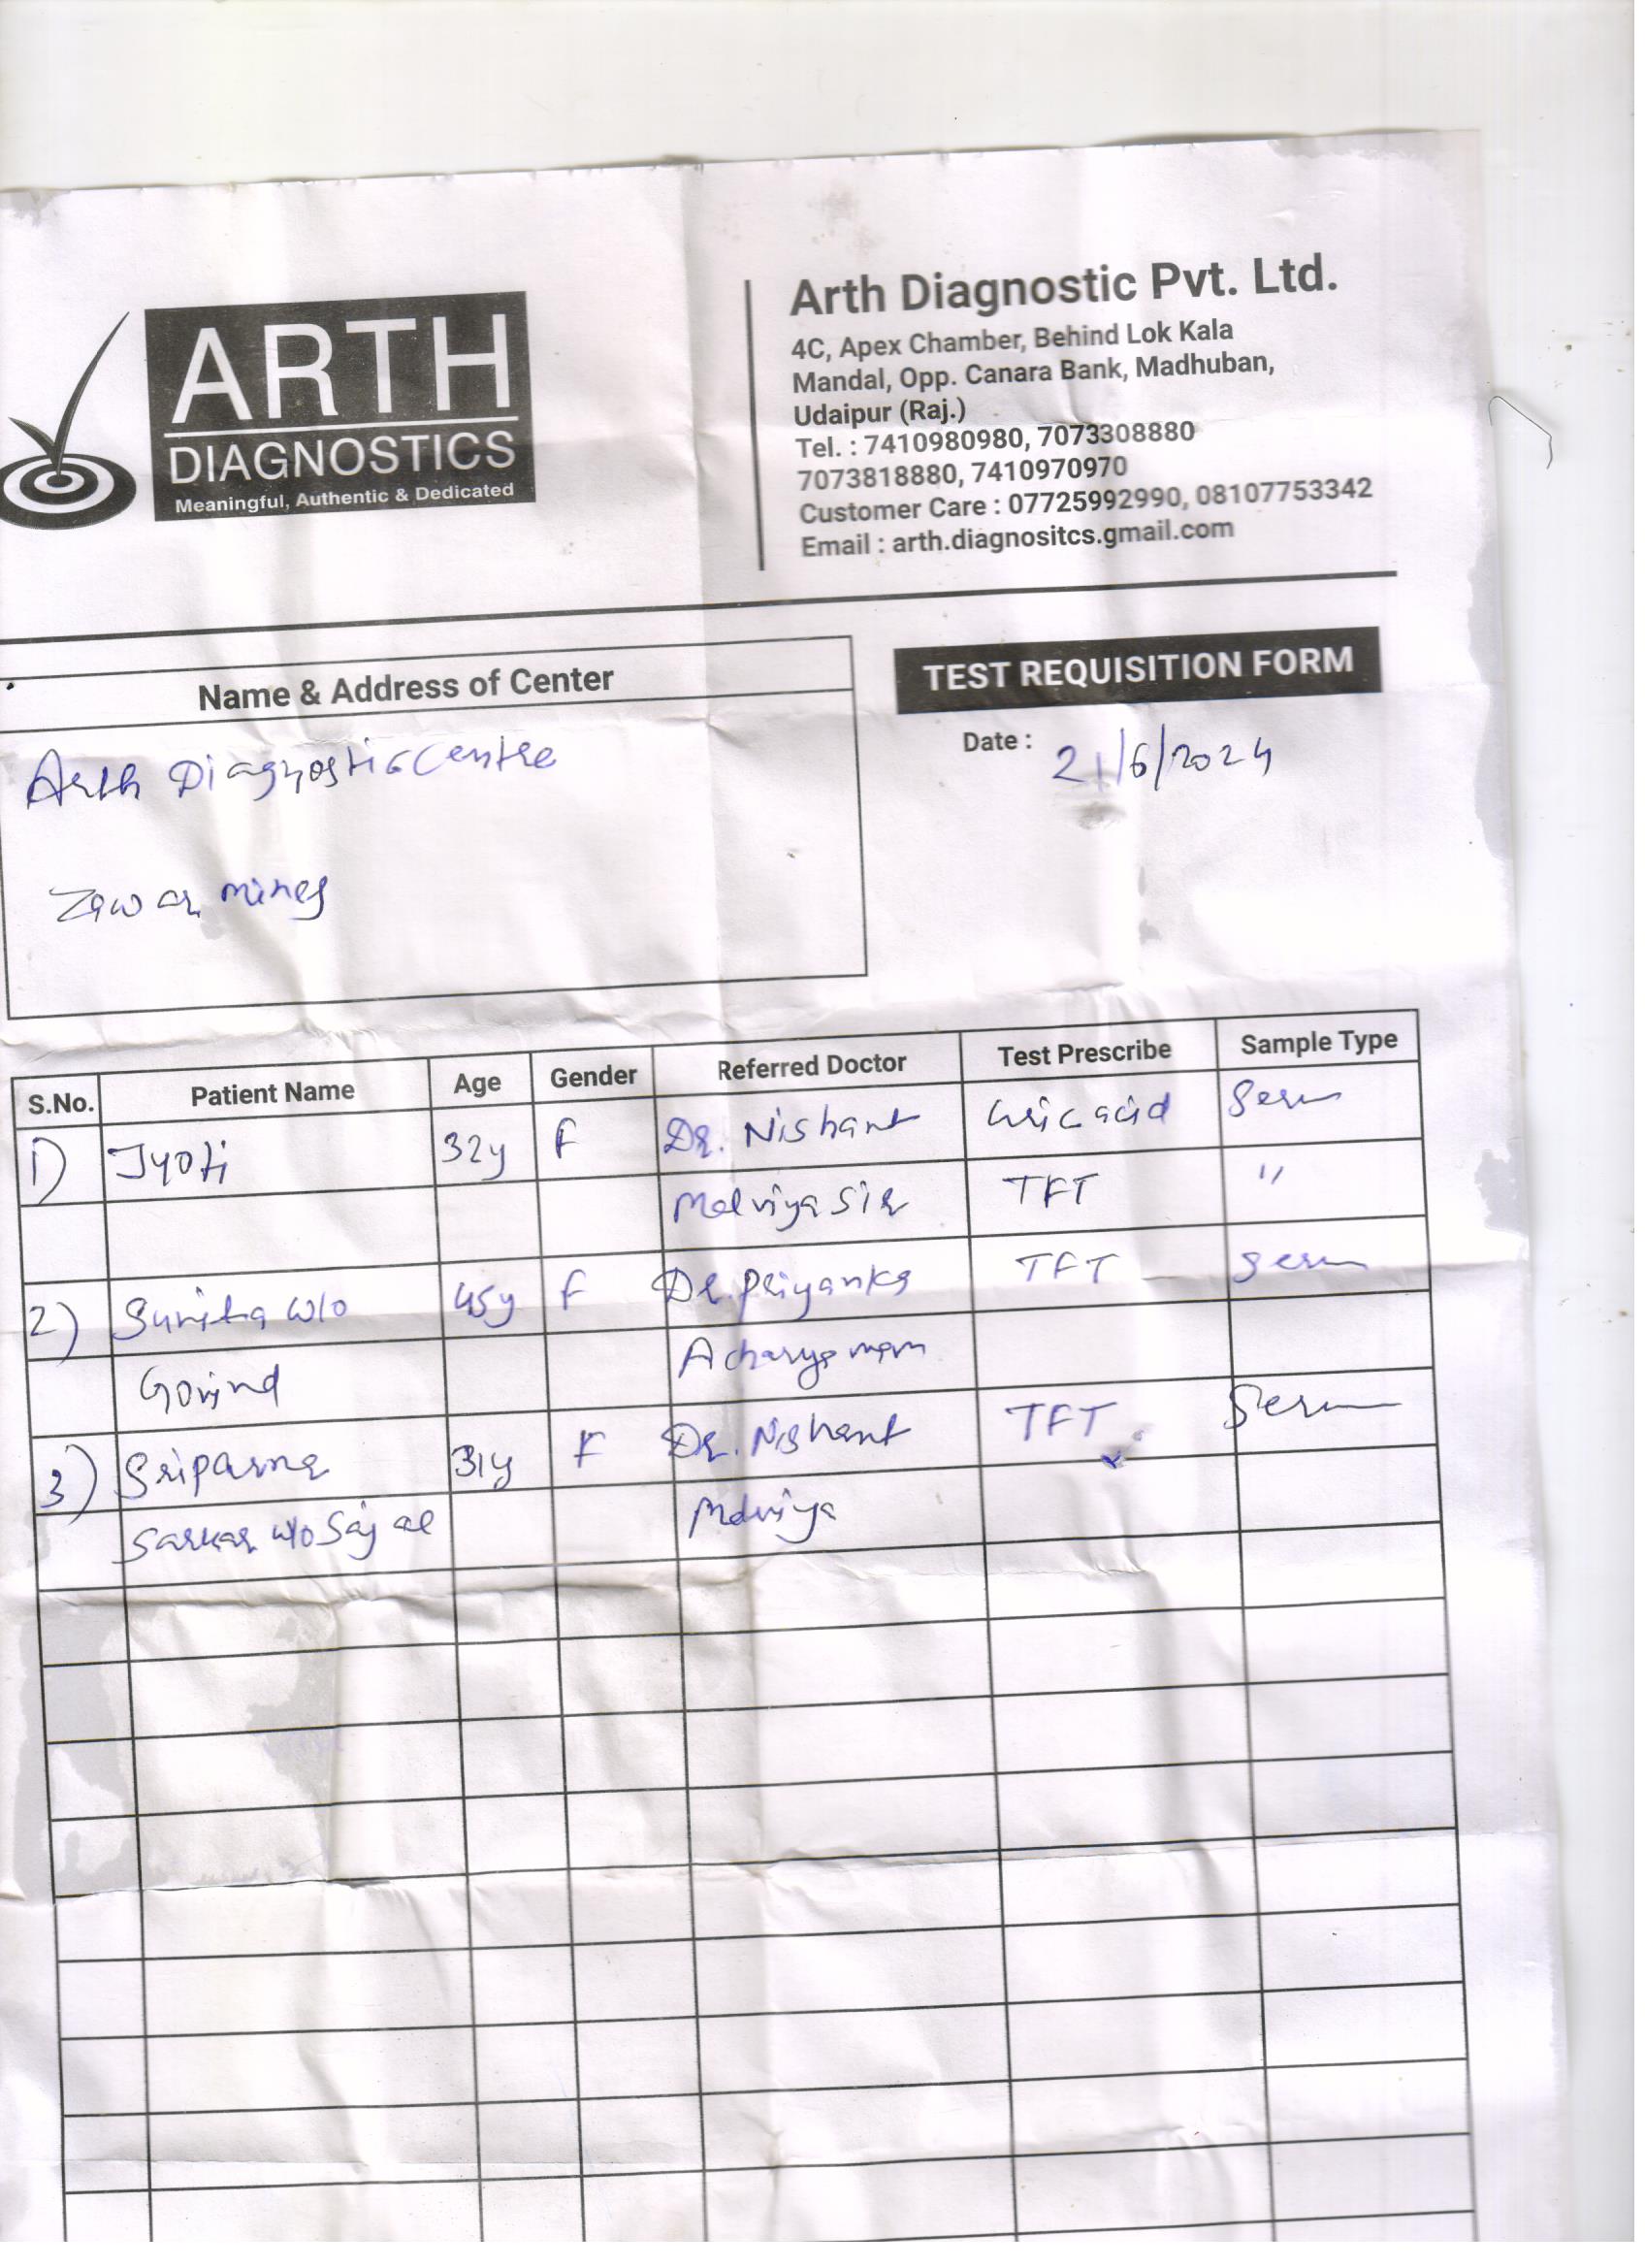 ARTH
DIAGNOSTICS
Meaningful, Authentic & Dedicated
Arth Diagnostic Pvt. Ltd.
4C, Apex Chamber, Behind Lok Kala
Mandal, Opp. Canara Bank, Madhuban,
Udaipur (Raj.)
Tel. : 7410980980, 7073308880
7073818880, 7410970970
Customer Care : 07725992990, 08107753342
Email : arth.diagnositcs.gmail.com
Name & Address of Center
Arth Diagnostic Centre
Zawar mines
TEST REQUISITION FORM
Date : 21/6/2024
S.No. Patient Name Age Gender Referred Doctor Test Prescribe Sample Type
1) Jyoti 32y F Dr. Nishant Uric acid Serum
Malviya Sir TFT "
2) Sunita w/o 45y F Dr. Priyanka TFT Serum
Govind Acharya mam
3) Sriparna 31y F Dr. Nishant TFT Serum
Sarkar w/o Sajal Malviya